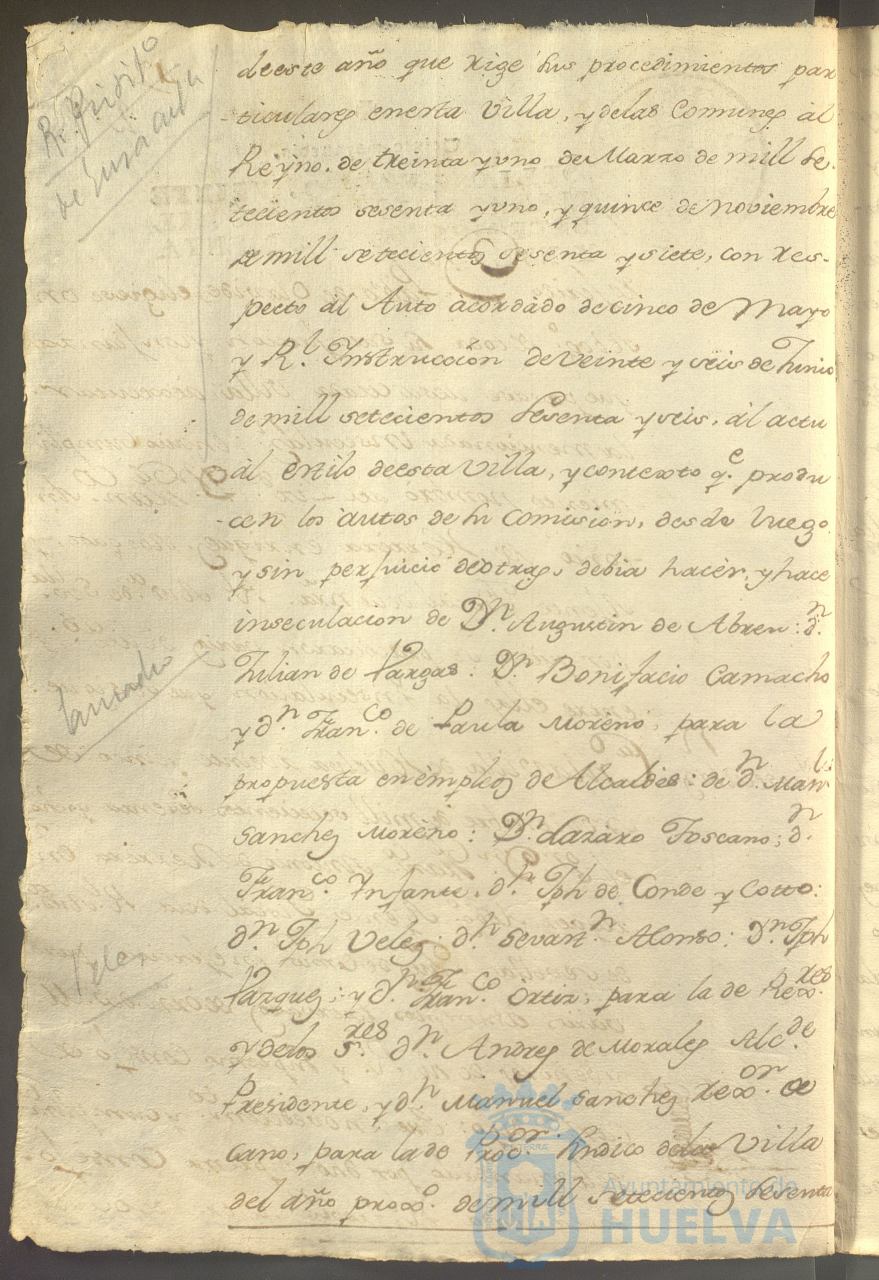 deeste año que rige sus procedimientos par
ticulares enesta Villa, y delas Comunes al
Reyno. de treinta y uno de Marzo de mill Se-
tecientos sesenta y uno, y quince de Noviembre
de mill setecientos sesenta y siete, con res-
pecto al Auto acordado de cinco de Mayo
y Rl. Instruccion de Veinte y seis de Junio
de mill setecientos Sesenta y seis, al actu
al estilo deesta Villa, y contexto qe. produ
cen los autos de su Comision, desde luego
y sin perjuicio deotras, debia hacer, y hace
inseculacion de Dn. Augustin de Abreu: dn.
Julian de Vargas: Dn. Bonifacio Camacho
y dn. Franco. de Paula Moreno, para la
propuesta en empleos de Alcaldes: de dn. Manl.
Sanchez Moreno: Dn. Lazaro Toscano; dn.
Franco. Ynfante. dn. Jph de Conde y Cotto:
dn. Jph Velez: dn. Sevastn. Alonso: Dn. Jph
Vazquez: y dn. Franco. Ortiz, para la de Rexres.
y delos Sres. dn. Andres de Morales Alcde.
Presidente, y dn. Manuel Sanchez Rexor. de
cano, para lade Procor. Sindico dela Villa
del año proxo. de mill setecientos Sesenta
R. Posito
Camacho
Velez
Ayuntamiento de
HUELVA